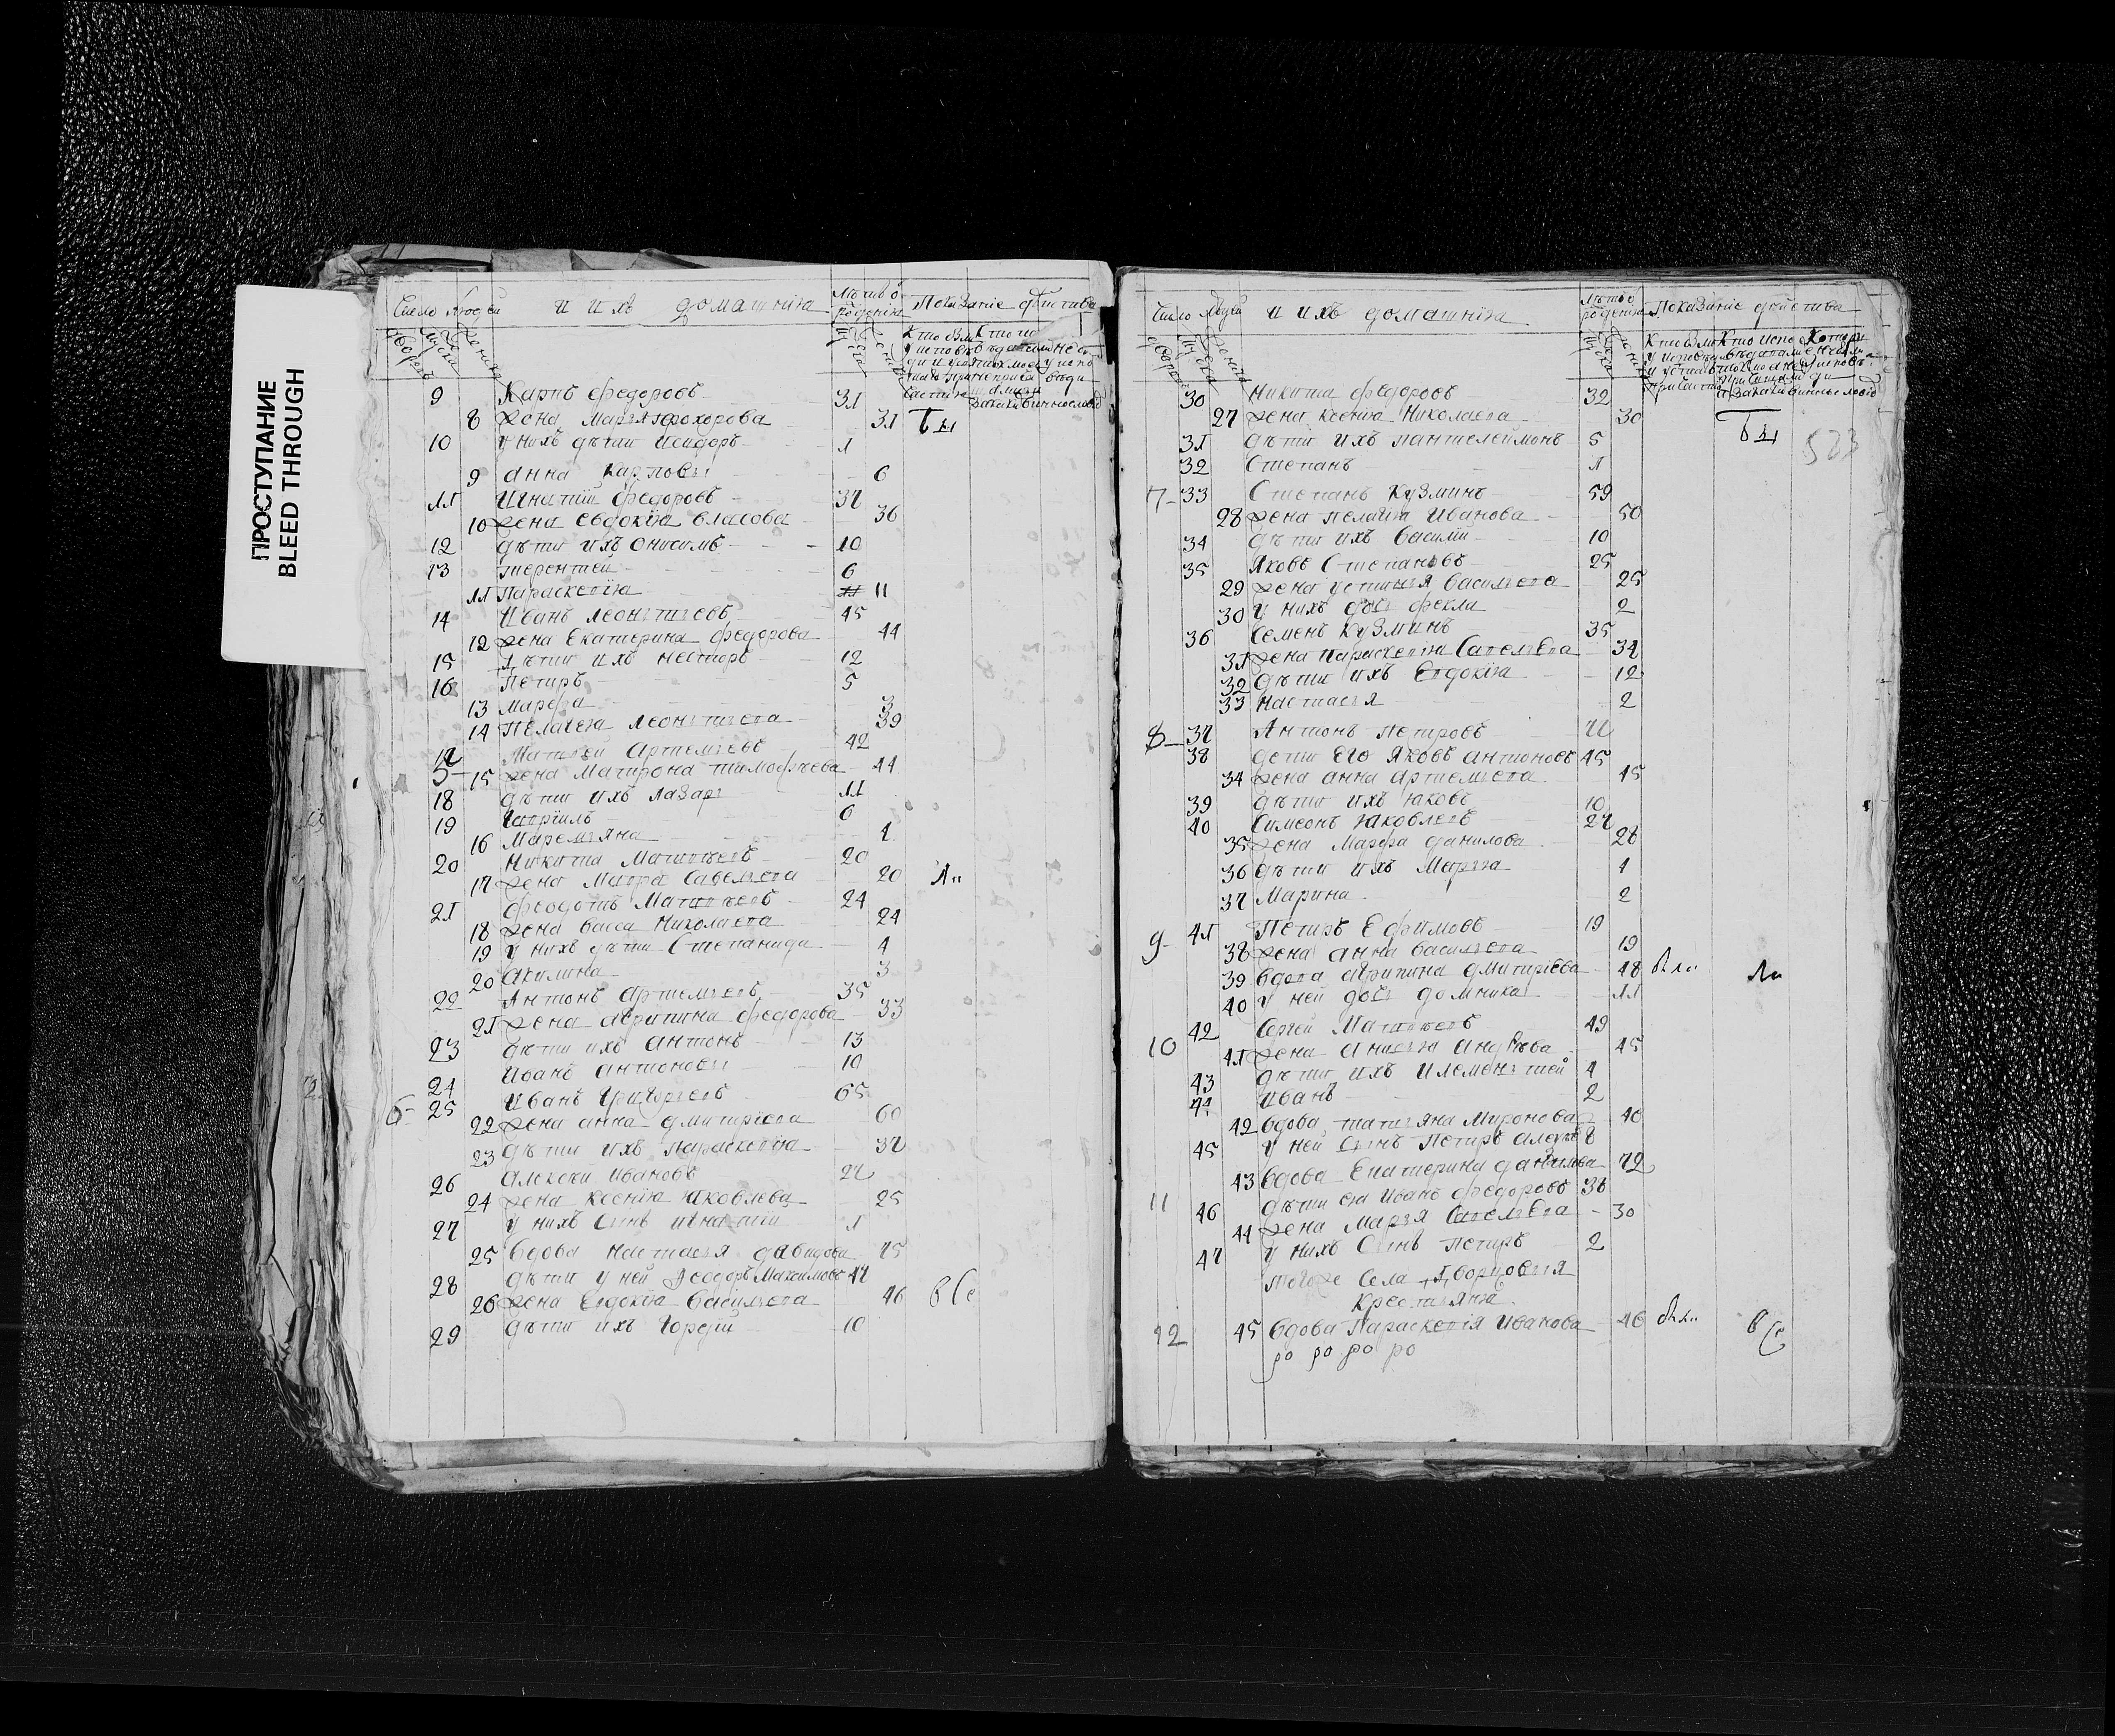 ПРОСТУПАНИЕ
BLEED THROUGH
Число людей и ихъ домашнїя Лѣтъ о рожденїи Показанїе дѣйства
9 Карпъ Федоровъ 31
8 жена Марья Прохорова 31
10 у нихъ дѣти Исидоръ 1
9 Анна Карповы 6
11 Игнатїй Федоровъ 37
10 жена Евдокїя Власова 36
12 дѣти ихъ Онисимъ 10
13 Терентей 6
11 Параскевїя 11
14 Иванъ Леонтьевъ 45
12 жена Екатерина Федорова 44
15 дѣти ихъ Несторъ 12
16 Петръ 5
13 Марфа 3
14 Пелагея Леонтьева 39
5 17 Матвей Артемьевъ 42
15 жена Матрона Тимофѣева 44
18 дѣти ихъ Лазарь 11
19 6
16 Маремьяна 4
20 Никита Матвѣевъ 20
17 жена Мавра Савельева 20
21 Феодотъ Матвѣевъ 24
18 жена Васса Николаева 24
19 у нихъ дѣти Степанида 4
20 Акилина 3
22 Антонъ Артемьевъ 35
21 жена Агрипина Федорова 33
23 дѣти ихъ Антонъ 13
24 Иванъ Антоновы 10
6 25 Иванъ Григорьевъ 65
22 жена Анна Дмитрїева 60
23 дѣти ихъ Параскевїа 37
26 Алексѣй Ивановъ 27
24 жена Ксенїя Яковлева 25
27 у нихъ сынъ Игнатїй 1
25 вдова Настасья Давидова 75
28 дѣти у ней Феодоръ Максимовъ 47
26 жена Евдокїа Васильева 46
29 дѣти ихъ Гордѣй 10
Число людей и ихъ домашнїя Лѣтъ о рожденїи Показанїе дѣйства
523
30 Никита Федоровъ 32
27 жена Ксенїя Николаева 30
31 дѣти ихъ Пантелеймонъ 5
32 Степанъ 1
7 33 Степанъ Кузминъ 59
28 жена Пелагїя Иванова 50
34 дѣти ихъ Василїй 10
35 Яковъ Степановъ 25
29 жена Устинья Васильева 25
30 у нихъ дочь Фекла 2
36 Семенъ Кузминъ 35
31 жена Параскевїя Савельева 34
32 дѣти ихъ Евдокїя 12
33 Настасья 2
8 37 Антонъ Петровъ
38 дети его Яковъ Антоновъ 45
34 жена Анна Артемьева 45
39 дѣти ихъ Яковъ 10
40 Симеонъ Яковлевъ 27
35 жена Марфа Данилова 26
36 дѣти ихъ Марья 4
37 Марина 2
9 41 Петръ Ефимовъ 19
38 жена Анна Васильева 19
39 вдова Агрипина Дмитрїева 48
40 у ней дочь Домника 11
10 42 Сергей Матвѣевъ 49
41 жена Анисья Андрѣева 45
43 дѣти ихъ Илементей 4
44 Иванъ 2
42 вдова Татьяна Миронова 40
45 у ней сынъ Петръ 8
43 вдова Екатерина Данилова 72
11 46 дѣти ея Иванъ Федоровъ 36
44 жена Марья Савельева 30
47 у нихъ сынъ Петръ 2
тогоже села дворцовыя
крестьяня
12 45 вдова Параскевїя Иванова 46